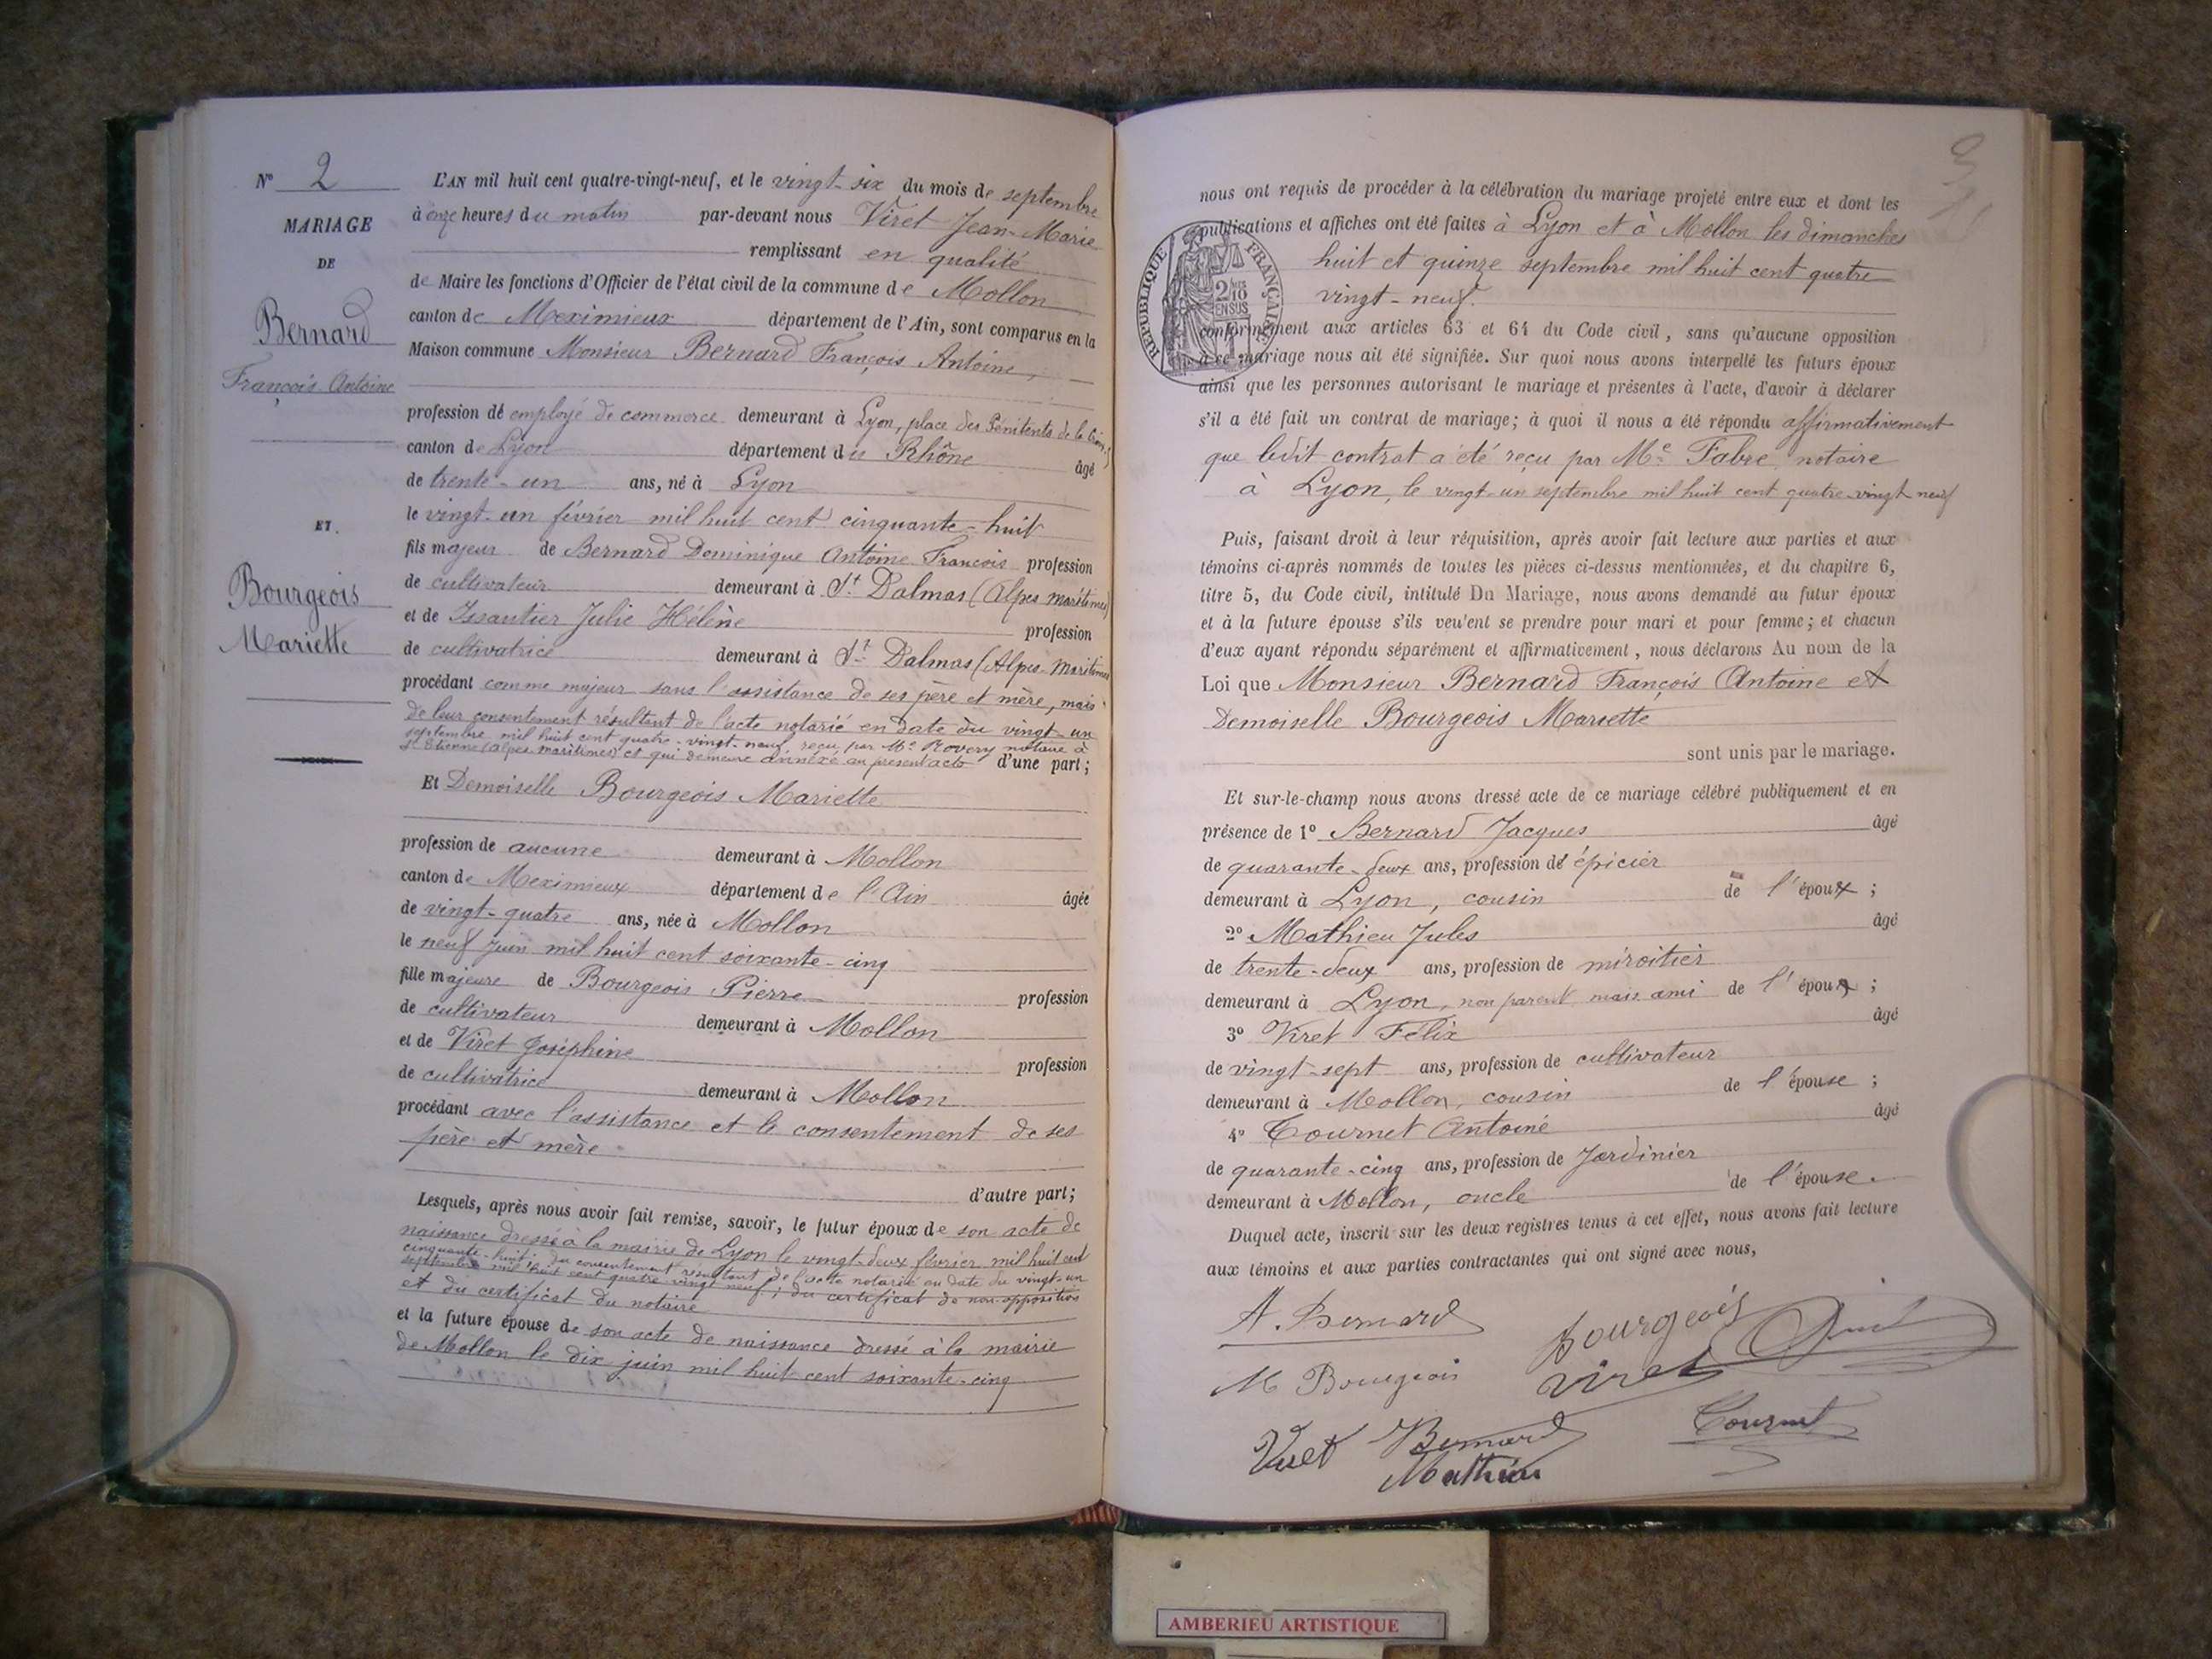 N° 2
MARIAGE
DE
Bernard
François Antoine
ET
Bourgeois
Mariette
L'AN mil huit cent quatre-vingt-neuf, et le vingt-six du mois de septembre
à onze heures du matin par-devant nous Viret Jean-Marie
remplissant en qualité
de Maire les fonctions d'Officier de l'état civil de la commune de Mollon
canton de Meximieux département de l'Ain, sont comparus en la
Maison commune Monsieur Bernard François Antoine,
profession de employé de commerce demeurant à Lyon, place des Pénitents de la Croix,
canton de Lyon département du Rhône âgé
de trente-un ans, né à Lyon
le vingt-un février mil huit cent cinquante-huit
fils majeur de Bernard Dominique Antoine François profession
de cultivateur demeurant à St Dalmas (Alpes maritimes)
et de Issautier Julie Hélène profession
de cultivatrice demeurant à St Dalmas (Alpes-Maritimes
procédant comme majeur sans l'assistance de ses père et mère, mais
de leur consentement résultant de l'acte notarié en date du vingt-un
septembre mil huit cent quatre-vingt-neuf, reçu par Me Rovery notaire à
St Etienne (alpes maritimes) et qui demeure annéxé au présent acte d'une part;
Et Demoiselle Bourgeois Mariette
profession de aucune demeurant à Mollon
canton de Meximieux département de l'Ain âgée
de vingt-quatre ans, née à Mollon
le neuf juin mil huit cent soixante-cinq
fille majeure de Bourgeois Pierre profession
de cultivateur demeurant à Mollon
et de Viret Joséphine profession
de cultivatrice demeurant à Mollon
procédant avec l'assistance et le consentement de ses
père et mère
d'autre part;
Lesquels, après nous avoir fait remise, savoir, le futur époux de son acte de
naissance dressé à la mairie de Lyon le vingt-deux février mil huit cent
cinquante-huit; du consentement résultant de l'acte notarié en date du vingt-un
septembre mil huit cent quatre vingt neuf; du certificat de non-opposition
et du certificat du notaire
et la future épouse de son acte de naissance dressé à la mairie
de Mollon le dix juin mil huit cent soixante-cinq
nous ont requis de procéder à la célébration du mariage projeté entre eux et dont les
publications et affiches ont été faites à Lyon et à Mollon les dimanches
huit et quinze septembre mil huit cent quatre
vingt-neuf.
RÉPUBLIQUE FRANÇAISE
2/10 EN SUS
conformément aux articles 63 et 64 du Code civil, sans qu'aucune opposition
à ce mariage nous ait été signifiée. Sur quoi nous avons interpellé les futurs époux
ainsi que les personnes autorisant le mariage et présentes à l'acte, d'avoir à déclarer
s'il a été fait un contrat de mariage; à quoi il nous a été répondu affirmativement
que ledit contrat a été reçu par Me Fabre, notaire
à Lyon, le vingt-un septembre mil huit cent quatre-vingt neuf
Puis, faisant droit à leur réquisition, après avoir fait lecture aux parties et aux
témoins ci-après nommés de toutes les pièces ci-dessus mentionnées, et du chapitre 6,
titre 5, du Code civil, intitulé Du Mariage, nous avons demandé au futur époux
et à la future épouse s'ils veu'ent se prendre pour mari et pour femme; et chacun
d'eux ayant répondu séparément et affirmativement, nous déclarons Au nom de la
Loi que Monsieur Bernard François Antoine et
Demoiselle Bourgeois Mariette
sont unis par le mariage.
Et sur-le-champ nous avons dressé acte de ce mariage célébré publiquement et en
présence de 1° Bernard Jacques âgé
de quarante-deux ans, profession d'épicier
demeurant à Lyon, cousin de l'époux;
2° Mathieu Jules âgé
de trente-deux ans, profession de miroitier
demeurant à Lyon, non parent mais ami de l'époux;
3° Viret Félix âgé
de vingt-sept ans, profession de cultivateur
demeurant à Mollon, cousin de l'épouse;
4° Tournet Antoine âgé
de quarante-cinq ans, profession de Jardinier
demeurant à Mollon, oncle de l'épouse.
Duquel acte, inscrit sur les deux registres tenus à cet effet, nous avons fait lecture
aux témoins et aux parties contractantes qui ont signé avec nous,
A. Bernard
Bourgeois
M Bourgeois
Viret
Viret
Bernard
Tournet
Mathieu
AMBERIEU ARTISTIQUE